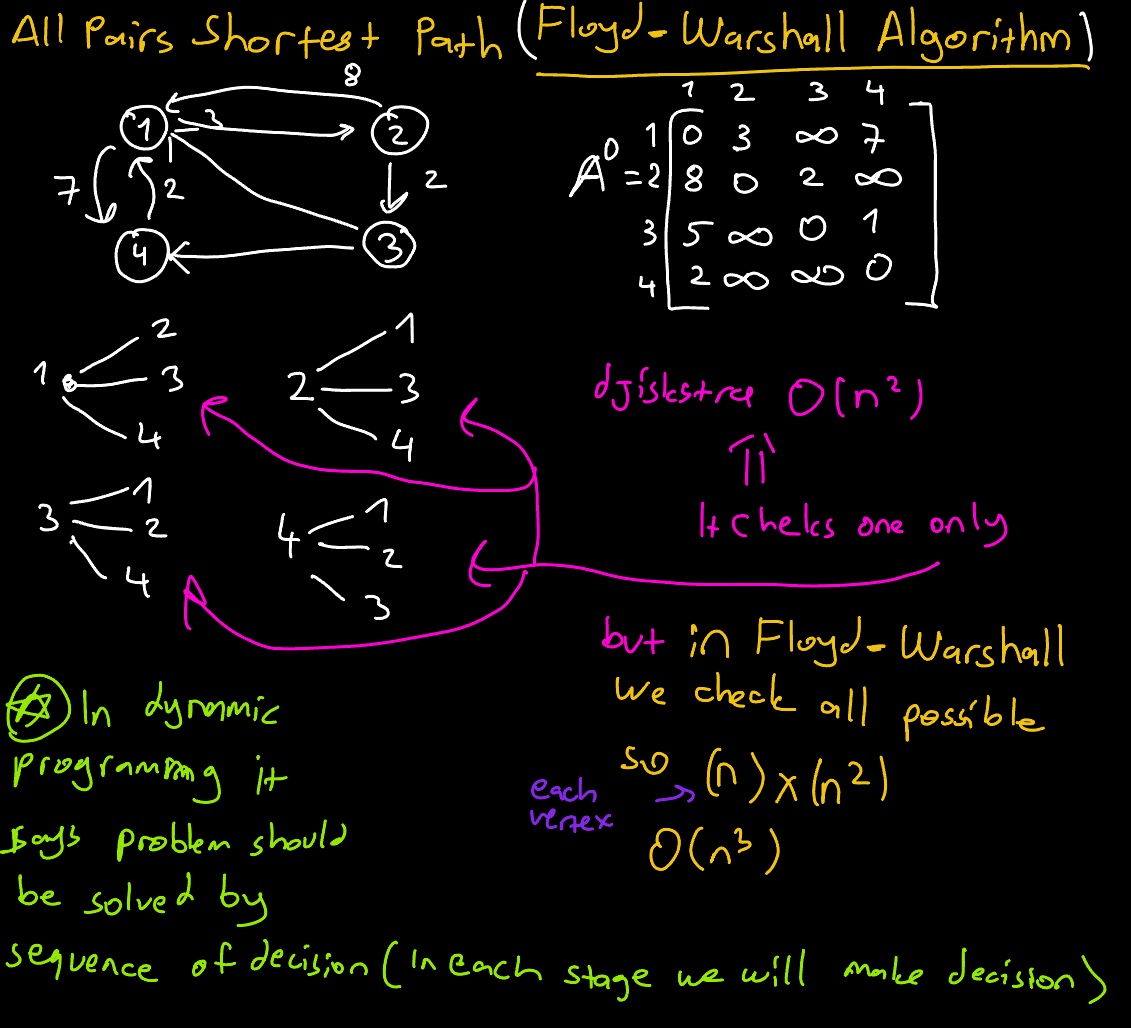 All Pairs Shortest Path (Floyd-Warshall Algorithm)
8
1 3 2
7 2 2
4 3
1 2 3 4
1 0 3 ∞ 7
A⁰ = 2 8 0 2 ∞
3 5 ∞ 0 1
4 2 ∞ ∞ 0
1 2 3 4
2 1 3 4
3 1 2 4
4 1 2 3
djiskstra O(n²)
It cheks one only
but in Floyd-Warshall
we check all possible
so (n) x (n²)
each
vertex
O(n³)
In dynamic
programming it
says problem should
be solved by
sequence of decision (in each stage we will make decision)